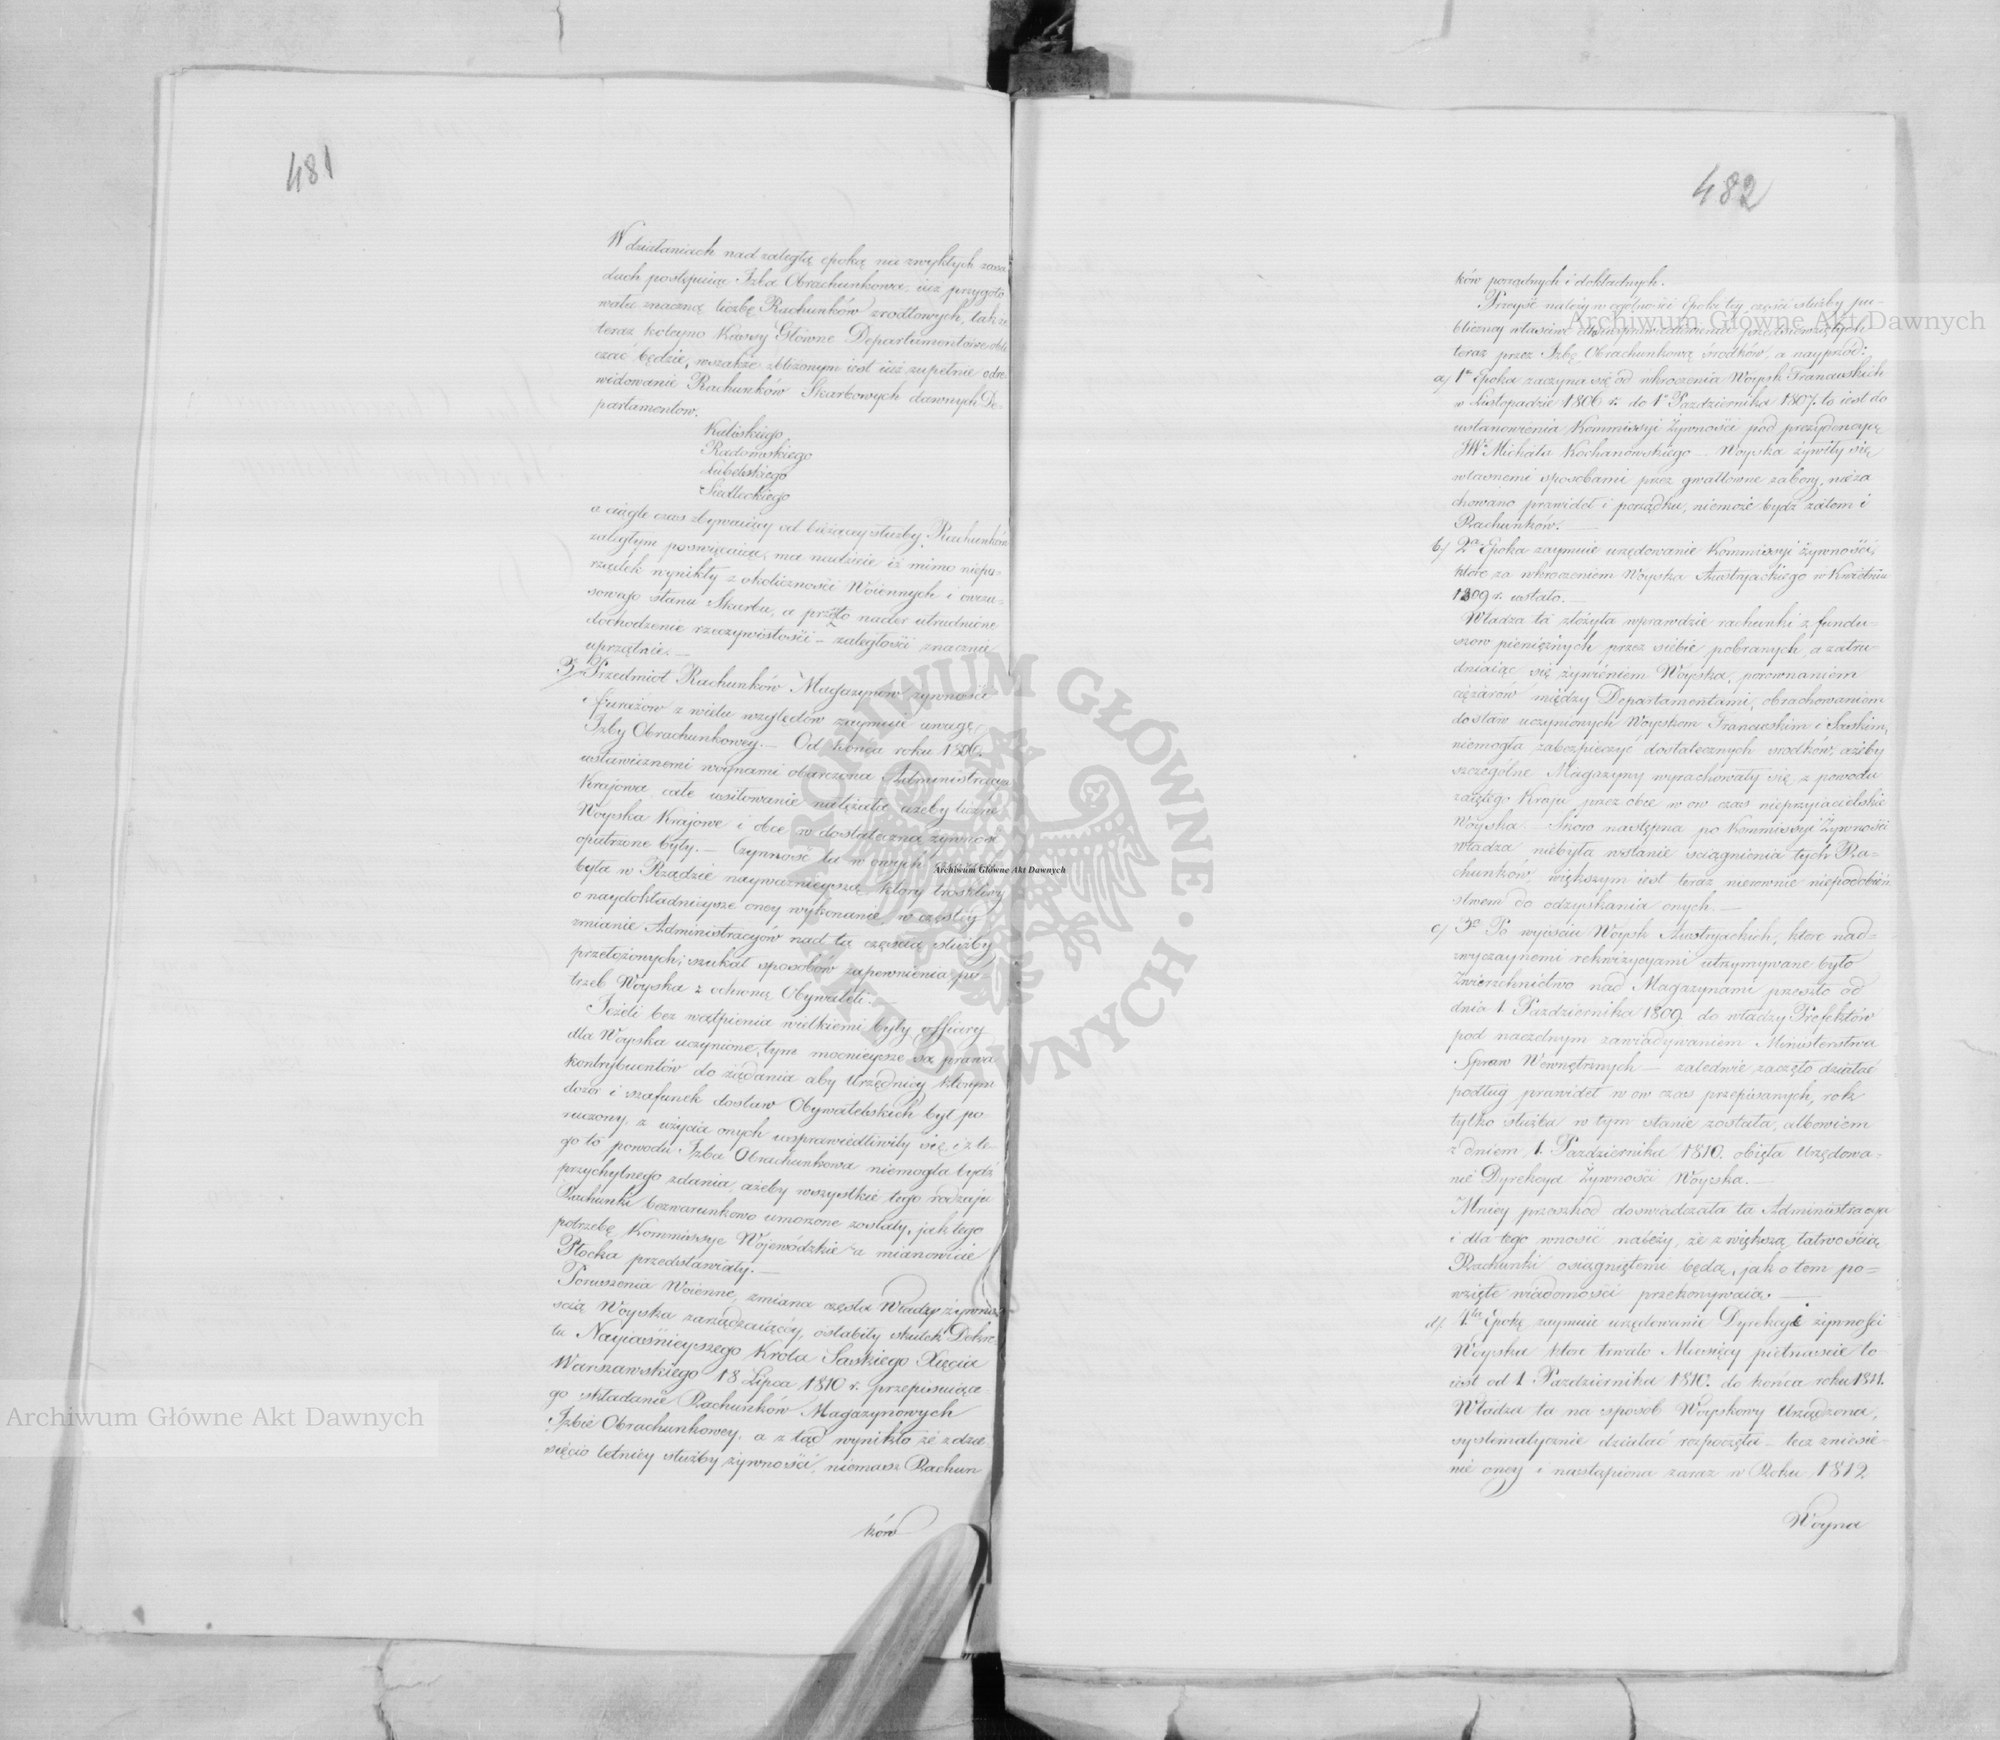 481
W działaniach nad zaległą epoką na zwykłych zasa-
dach postępuiąc Izba Obrachunkowa, iuż przygoto
wała znaczną liczbę Rachunków zrodłowych, tak że
teraz koleyno Kassy Główne Departamentowe obli
czać będzie, wszakże zbliżonym iest iuż zupełnie odre
widowanie Rachunków Skarbowych dawnych De-
partamentow.
Kaliskiego
Radomskiego
Lubelskiego
Siedleckiego
a ciągle czas zbywaiący od bieżącey służby, Rachunków
zaległym poswięcaiąc, ma nadzieie iż mimo niepo-
rządek wynikły z okoliczności Woiennych i owcza-
sowego stanu Skarbu, a przeto nader utrudnione
dochodzenie rzeczywistości – zaległości znacznie
uprzątnie. —
3. Przedmiot Rachunków Magazynow żywności
i furażów z wielu względów zaymuie uwagę
Izby Obrachunkowey. – Od końca roku 1806.
ustawicznemi woynami obarczona Administracya
Krajowa całe usiłowanie natężała ażeby liczne
Woyska Krajowe i obce w dostateczną żywność
opatrzone były. – Czynność ta w owych czasach
była w Rządzie nayważnieyszą który troskliwy
o naydokładnieysze oney wykonanie w częstey
zmianie Administracyów nad tą częscią służby
przełożonych, szukał sposobów zapewnienia po-
trzeb Woyska z ochroną Obywateli. —
Jeżeli bez wątpienia wielkiemi były offiary
dla Woyska uczynione, tym mocnieysze są prawa
kontrybuentów do żądania aby Urzędnicy którym
dozór i szafunek dostaw Obywatelskich był po
ruczony, z użycia onych usprawiedliwily się, i z te
go to powodu Izba Obrachunkowa niemogła bydź
przychylnego zdania, ażeby wszystkie tego rodzaju
Rachunki bezwarunkowo umorzone zostały, jak tego
potrzebę Kommissye Wojewódzkie a mianowicie
Płocka przedstawiały. —
Poruszenia Woienne, zmiana częsta Władzy żywno-
scią Woyska zarządzaiącéy, osłabiły skutek Dekre
tu Nayiaśnieyszego Króla Saskiego Xięcia
Warszawskiego 18 Lipca 1810 r. przepisuiące-
go składanie Rachunków Magazynowych
Izbie Obrachunkowey, a z tąd wynikło że z dzie
sięcio letniey służby żywności, niemasz Rachun
ków
482
ków porządnych i dokładnych.
Przeyść należy w ogólności Epoki tey części służby pu-
bliczney
teraz przez Izbę Obrachunkową środków, a nayprzód:
a) 1a Epoka zaczyna się od wkroczenia Woysk Francuskich
w Listopadzie 1806 r. do 1o Pazdziernika 1807. to iest do
ustanowienia Kommissyi Żywności pod prezydencyą
JW. Michała Kochanowskiego – Woyska żywiły się
własnemi sposobami przez gwałtowne zabory, nieza
chowano prawideł i porządku, niemoże bydź zatem i
Rachunkow. —
b) 2a Epoka zaymuie urzędowanie Kommissyi Żywności,
które za wkroczeniem Woyska Austryackiego w Kwietniu
1809 r. ustało. —
Władza ta złożyła wprawdzie rachunki z fundu-
szow pieniężnych przez siebie pobranych, a zatru-
dniaiąc się żywieniem Woyska, porownaniem
ciężarów między Departamentami, obrachowaniem
dostaw uczynionych Woyskom Francuskim i Saskim,
niemogła zabezpieczyć dostatecznych srodków, ażeby
szczególne Magazyny wyrachowały się, z powodu
zaiętego Kraju przez obce w ow czas nieprzyiacielskie
Woyska. Skoro następna po Kommissyi Żywności
władza niebyła wstanie sciągnienia tych Ra-
chunków, większym iest teraz nierównie niepodobień
stwem do odzyskania onych. —
c) 3a Po wyisciu Woysk Austryackich, które nad-
zwyczaynemi rekwizycyami utrzymywane było
Zwierzchnictwo nad Magazynami przeszło od
dnia 1. Pazdziernika 1809. do władzy Prefektów
pod naczelnym zawiadywaniem Ministerstwa
Spraw Wewnętrznych – zaledwie zaczęto działać
podług prawideł w ow czas przepisanych, rok
tylko służba w tym stanie została, albowiem
z dniem 1. Pazdziernika 1810. obięła Urzędowa-
nie Dyrekcya Żywności Woyska. —
Mniey przeszkod doswiadczała ta Administracya
i dla tego wnosić należy, że z większą łatwością
Rachunki osiągniętemi będą, jak o tem po-
wzięte wiadomości przekonywaią. —
d) 4ta Epokę zaymuie urzędowanie Dyrekcyi żywności
Woyska które trwało Miesięcy pietnascie to
iest od 1. Pazdziernika 1810. do końca roku 1811.
Władza ta na sposób Woyskowy Urządzona,
systematycznie działać rozpoczęła – lecz zniesie-
nie oney i nastąpiona zaraz w Roku 1812
Woyna
Archiwum Główne Akt Dawnych
Archiwum Główne Akt Dawnych
Archiwum Główne Akt Dawnych
ARCHIWUM GŁÓWNE AKT DAWNYCH